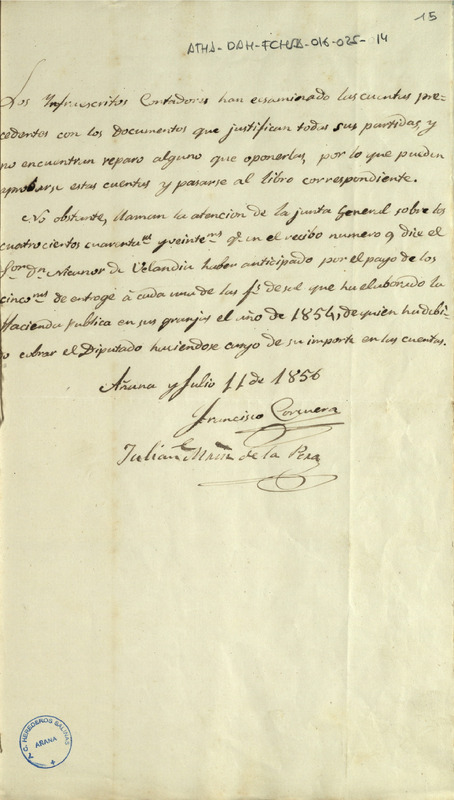 15
ATHA-DAH-FCHSA-016-025-14
Los Ynfrascritos Contadores han ecsaminado las cuentas pre-
cedentes con los documentos que justifican todas sus partidas, y
no encuentran reparo alguno que oponerlas, por lo que pueden
aprobarse estas cuentas y pasarse al libro correspondiente.
No obstante, llaman la atencion de la junta General sobre los
cuatrocientos cuarenta y veinte que en el recibo numero 9 dice el
Sor. Dn. Nicanor de Velandia haber anticipado por el pago de los
cinco mrs. de entrage á cada una de las fs. de sal que ha elaborado la
Hacienda publica en sus granjas el año de 1854, de quien ha debi-
do cobrar el Diputado haciendose cargo de su importe en las cuentas.
Añana y Julio 11 de 1856
Francisco Corcuera
Julian Martin de la Peña
A.C. HEREDEROS SALINAS
AÑANA